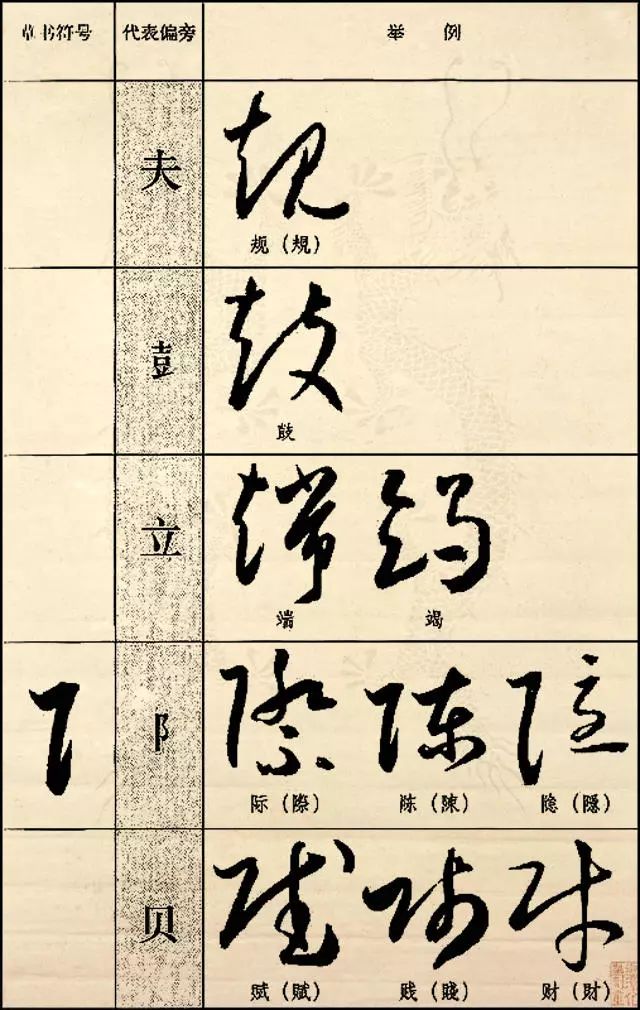 草书符号 代表偏旁 举例
夫
规（規）
壴
鼓
立
端 竭
阝
际（際） 陈（陳） 隐（隱）
贝
赋（賦） 贱（賤） 财（財）